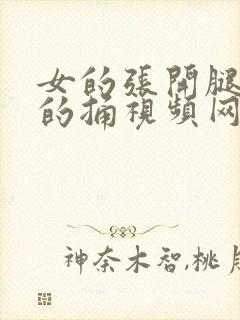 女的张開腿
的捅視頻网
神奈木智,桃